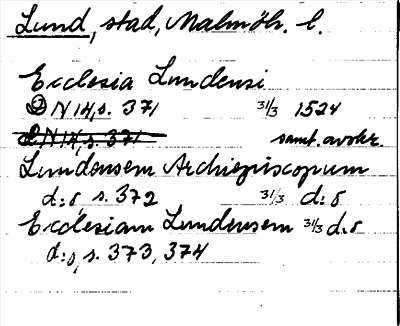 Lund, stad, Malmöh. l.
Ecclesia Lundensi
D N 14, s. 371 31/3 1524
D N 14, s. 371 samt. avskr.
Lundensem Archiepiscopum
d:o s. 372 31/3 d:o
Ecclesiam Lundensem 31/3 d:o
d:o, s. 373, 374